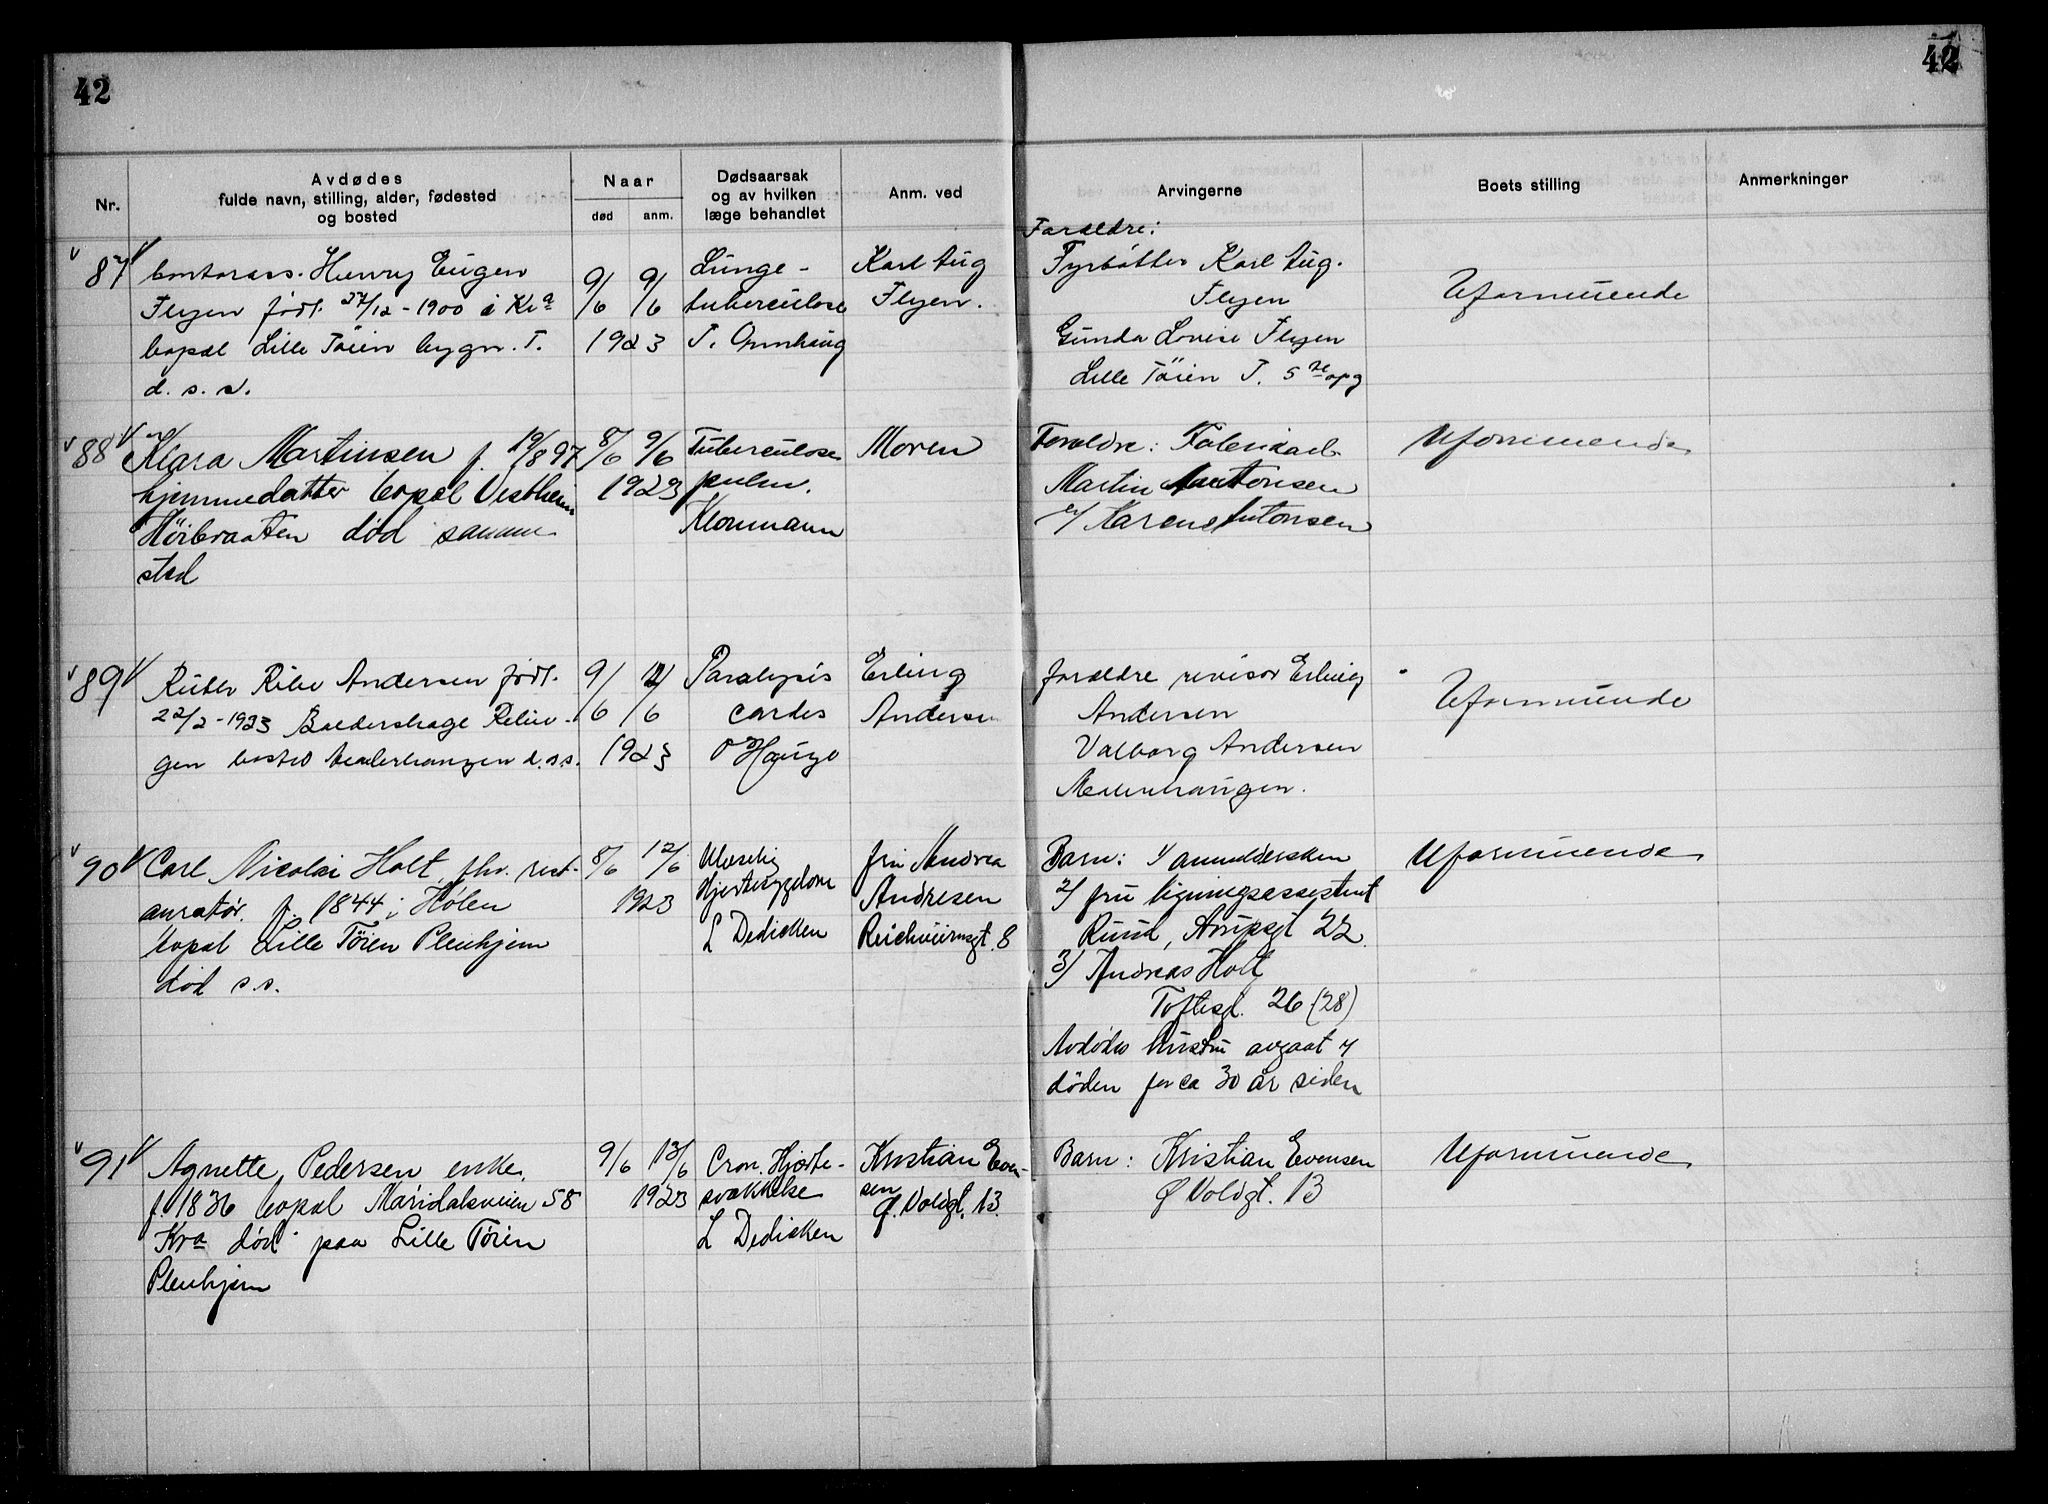 42
42
Nr.
Avdødes
fulde navn, stilling, alder, fødested
og bosted
Naar
død
anm.
Dødsaarsak
og av hvilken
læge behandlet
Anm. ved
Arvingerne
Boets stilling
Anmerkninger
87
Henry Eugen
Flyen født. 27/12 - 1900 i Kr a
bopæl Lille Tøien bygn. T.
d. s. s.
9/6 9/6
1923
Lunge-
tuberculose
Karl Aug
Flyen.
Forældre:
Fyrbøtter Karl Aug.
Flyen
Gunda Lovise Flyen
Lille Tøien T. 5 te opg
Uformuende
88
Klara Martinsen f. 19/8 97
hjemmedatter bopæl Vestheim
Høibraaten død samme
sted
8/6 9/6
1923
Tuberculose
pulm.
Klonmann
Moren
Forældre:
Martin Antonsen
2/ Karen Antonsen
Uformuende
89
Andersen født.
22/2 - 1923
gen bosted d.s.s.
9/6 /6
1923
Paralysis
cordis
O Hauge
Erling
Andersen
forældre revisor Erling
Andersen
Valborg Andersen
Uformuende
90
Carl Nicolai Holt, fhv. rest-
auratør. f. 1844 i Hølen
bopæl Lille Tøien Pleiehjem
død s.s.
8/6 12/6
1923
Ulæselig
Hjertesygdom
L Dedicken
fru Andrea
Andresen
Reichweinsgt. 8
Barn: 1/ anmeldersken
2/ fru ligningsassistent
Ruud, Arupsgt 22
3/ Andreas Holt
Toftesgt. 26 (28)
Avdødes hustru avgaat v
døden for ca 30 år siden
Uformuende
91
Agnette Pedersen enke.
f. 1836 bopæl Maridalsveien 58
Kra død paa Lille Tøien
Pleiehjem
9/6 13/6
1923
Cron. Hjerte-
svækkelse
L Dedicken
Kristian Even-
sen
Ø. Voldgt. 13.
Barn: Kristian Evensen
Ø Voldgt. 13
Uformuende